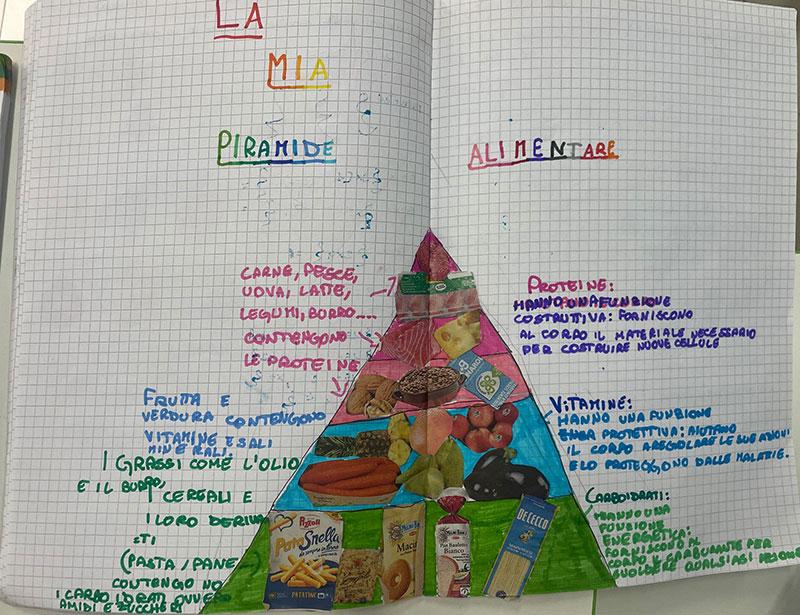 LA
MIA
PIRAMIDE ALIMENTARE
CARNE, PESCE,
UOVA, LATTE,
LEGUMI, BURRO....
CONTENGONO
LE PROTEINE
PROTEINE:
HANNO UNA FUNZIONE
COSTRUTTIVA: FORNISCONO
AL CORPO IL MATERIALE NECESSARIO
PER COSTRUIRE NUOVE CELLULE
FRUTTA E
VERDURA CONTENGONO
VITAMINE E SALI
MINERALI.
VITAMINE:
HANNO UNA FUNZIONE
PROTETTIVA: AIUTANO
IL CORPO A REGOLARE LE SUE
E LO PROTEGGONO DALLE MALATIE.
I GRASSI COME L'OLIO
E IL BURRO,
I CEREALI E
I LORO DERIVA
TI
(PASTA/PANE
CONTENGONO
I CARBOIDRATI OVVERO
AMIDI E ZUCCHERI
CARBOIDRATI:
HANNO UNA
FUNZIONE
ENERGETICA:
FORNISCONO AL
CORPO IL CARBURANTE PER
SVOLGERE QUALSIASI AZIONE
Pizzoli
Pata Snella
PATATINE
Pan Bauletto
Bianco
DE CECCO